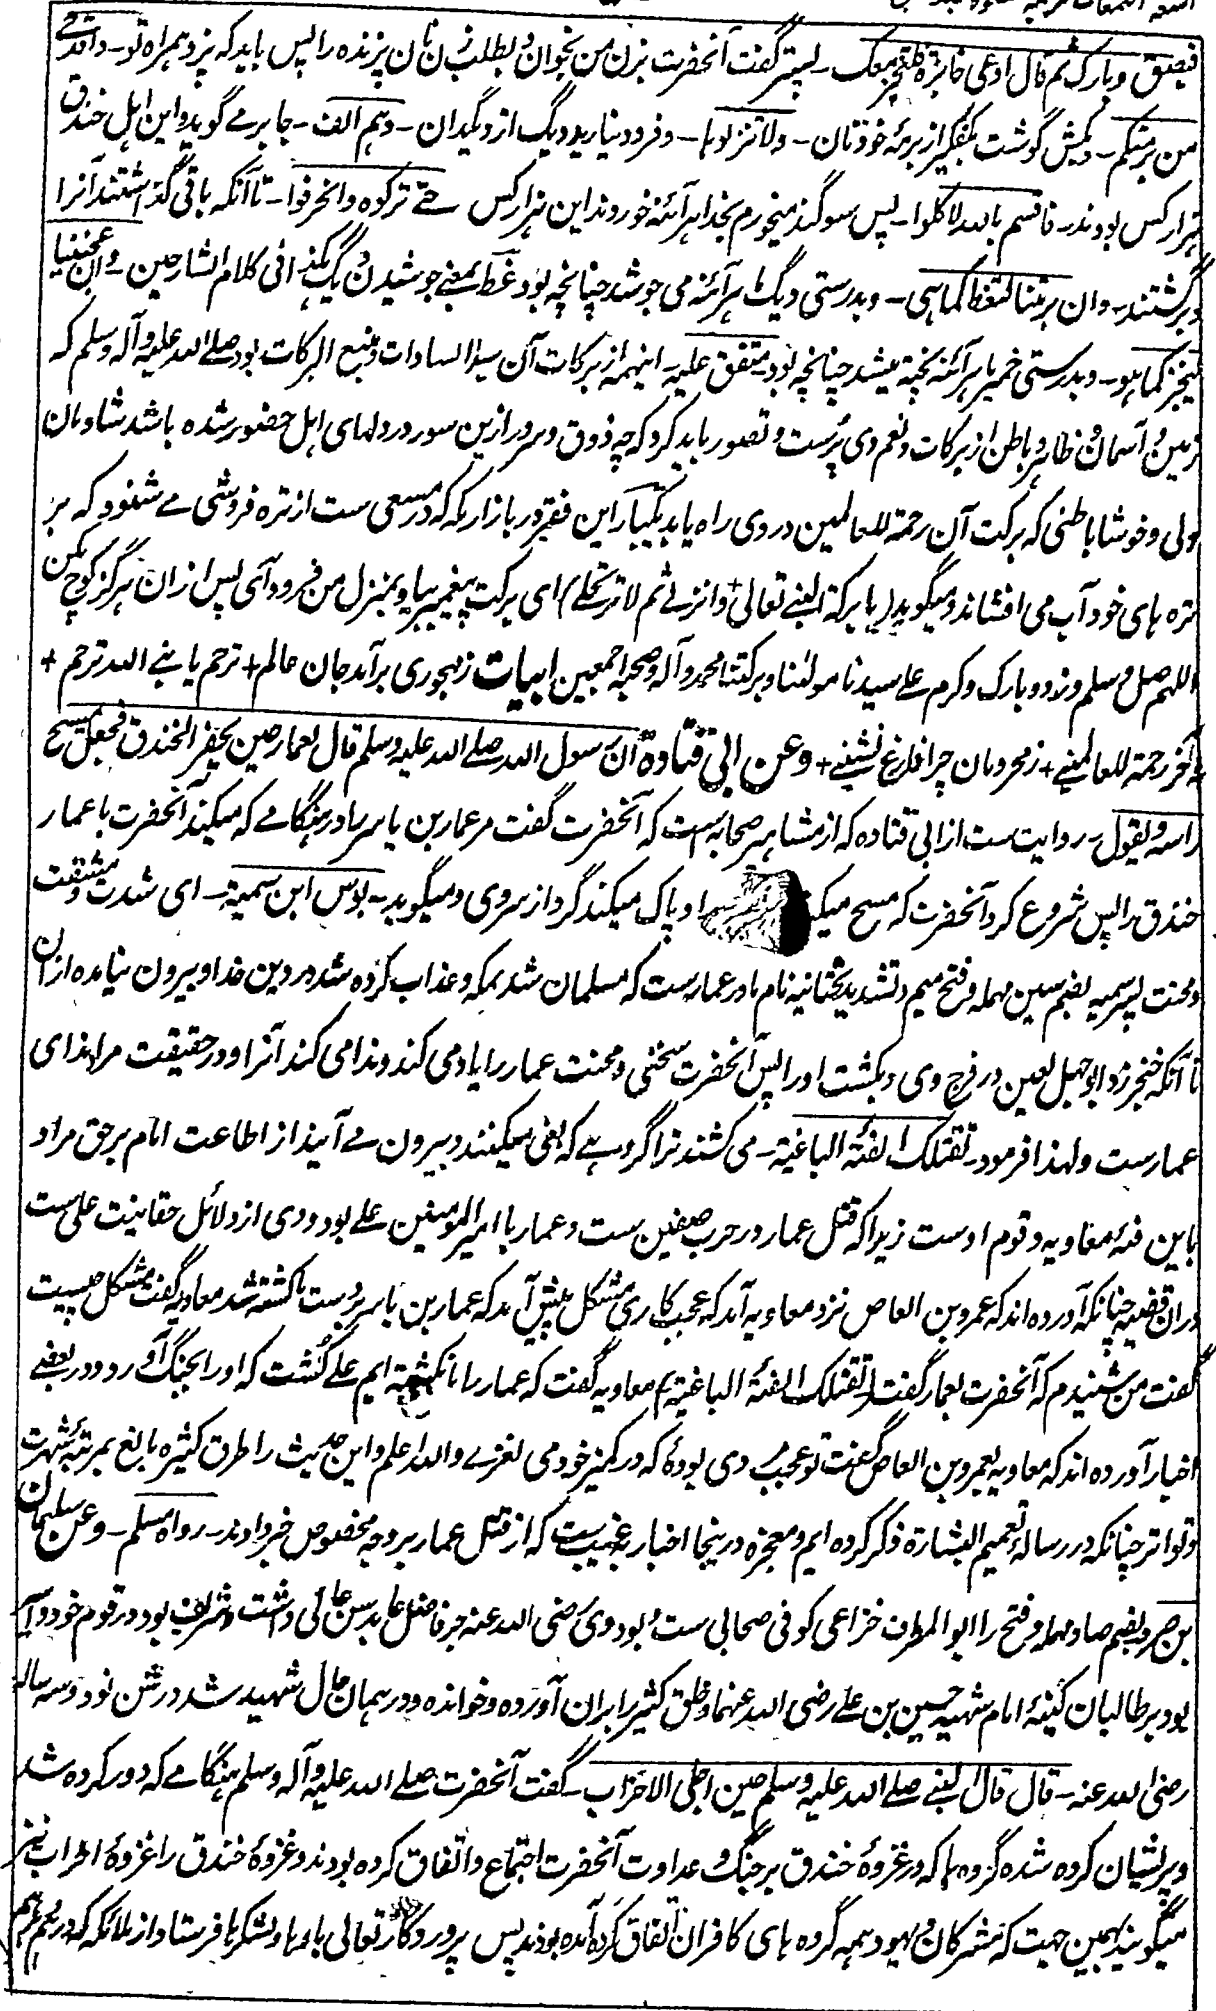 فبصق و بارک ثم قال ادعی خابزة فلتخبز معک ـ پستر گفت آنحضرت بزن من بخوان و بطلب زن نان پزنده را پس باید که پزد همراه تو ـ واقدحی
من برمتکم ـ و بکش گوشت بکفگیر از برمهٔ خودتان ـ ولا تنزلوها ـ و فرود نیارید دیگ از دیگدان ـ وهم الف ـ جابر می گوید و این اهل خندق
هزار کس بودند ـ فاقسم بالله لاکلوا ـ پس سوگند میخورم بخدا هر آئنه خوردند این هزار کس حتی ترکوه وانحرفوا ـ تا آنکه باقی گذاشتند آنرا
و برگشتند ـ وان برمتنا لتغط کما هی ـ و بدرستی دیگ ما هر آئنه می جوشد چنانچه بود غط بمعنی جوشیدن دیگ کذا فی کلام الشارحین ـ وان عجیننا
لیخبز کما هو ـ و بدرستی خمیر ما هر آئنه پخته میشد چنانچه بود متفق علیه ـ اینهمه از برکات آن سید السادات و منبع البرکات بود صلی الله علیه وآله وسلم که
زمین و آسمان و ظاهر و باطن از برکات و نعم وی پُرست و تصور باید کرد که چه ذوق و سرور ازین سور در دلهای اهل حضور شده باشد شادمان
دلی و خوشا باطنی که برکت آن رحمة للعالمین در وی راه یابد یکبار این فقیر در بازار مکه که در مسعی ست از تره فروشی می شنود که بر
تره های خود آب می افشاند و میگوید (یا برکة النبی تعالی وانزلی ثم لا ترتحلی) ای برکت پیغمبر بیا و بمنزل من فرود آی پس ازان هرگز کوچ مکن
اللهم صل وسلم وزد و بارک و کرم علی سیدنا مولانا وبرکتنا محمد وآله وصحبه اجمعین ابیات زمهجوری برآمد جان عالم + ترحم یا نبی الله ترحم +
نه آخر رحمة للعالمینی + زمحرومان چرا فارغ نشینی + وعن ابی قتادة ان رسول الله صلی الله علیه وسلم قال لعمار حین یحفر الخندق فجعل یمسح
راسه ویقول ـ روایت ست از ابی قتاده که از مشاهیر صحابه است که آنحضرت گفت مر عمار بن یاسر را در هنگامی که میکند آنحضرت یا عمار
خندق را پس شروع کرد آنحضرت که مسح میکند او پاک میکند گرد از سر وی و میگوید ـ بوس ابن سمیة ـ ای شدت و مشقت
و محنت پسر سمیه بضم سین مهمله و فتح میم و تشدید تحتانیه نام مادر عمارست که مسلمان شد بمکه و عذاب کرده شد در دین خدا و بیرون نیامده ازان
تا آنکه خنجر زد ابوجهل لعین در فرج وی و بکشت او را پس آنحضرت سختی و محنت عمار را یاد می کند و ندا می کند آنرا و در حقیقت مراد ندای
عمارست و لهذا فرمود ـ تقتلک الفئة الباغیة ـ می کشند ترا گروهی که بغی میکنند و بیرون می آیند از اطاعت امام برحق مراد
باین فئه معاویه و قوم اوست زیرا که قتل عمار در حرب صفین ست و عمار با امیر المومنین علی بود و وی از دلائل حقانیت علی ست
دران قضیه چنانکه آورده اند که عمرو بن العاص نزد معاویه آمد که عجب کاری مشکل پیش آمد که عمار بن یاسر بر دست ما کشته شد معاویه گفت مشکل چیست
گفت من شنیدم که آنحضرت بعمار گفت (تقتلک الفئة الباغیة) معاویه گفت که عمار را ما نکشته ایم علی کُشت که او را بجنگ آورد و در بعضی
اخبار آورده اند که معاویه بعمرو بن العاص گفت تو عجب مردی بودهٔ که در کمیز خود می لغزی والله اعلم و این حدیث را طرق کثیره بالغ بمرتبهٔ شهرت
و تواتر چنانکه در رسالهٔ تعمیم البشارة ذکر کرده ایم و معجزه درینجا اخبار بغیب ست که از قتل عمار بر وجه مخصوص خبر دادند ـ رواه مسلم ـ وعن سلیمان
بن صرد بضم صاد مهمله و فتح را ابو المطرف خزاعی کوفی صحابی ست و بود وی رضی الله عنه خیر فاضل عابد سن عالی داشت و شریف بود در قوم خود و
بود بر طالبان کینهٔ امام شهید حسین بن علی رضی الله عنهما و خلق کثیر را بران آورده و خوانده و در همان حال شهید شد در سن نود و سه ساله
رضی الله عنه ـ قال قال النبی صلی الله علیه وسلم حین اجلی الاحزاب ـ گفت آنحضرت صلی الله علیه وآله وسلم هنگامی که دور کرده شد
و پریشان کرده شده گروه ها که در غزوهٔ خندق بر جنگ و عداوت آنحضرت اجتماع و اتفاق کرده بودند و غزوهٔ خندق را غزوهٔ احزاب نیز
میگویند بهمین جهت که مشرکان و یهود و همه گروه های کافران اتفاق کرده آمده بودند پس پروردگار تعالی باد را و لشکرها فرستاد از ملائکه که